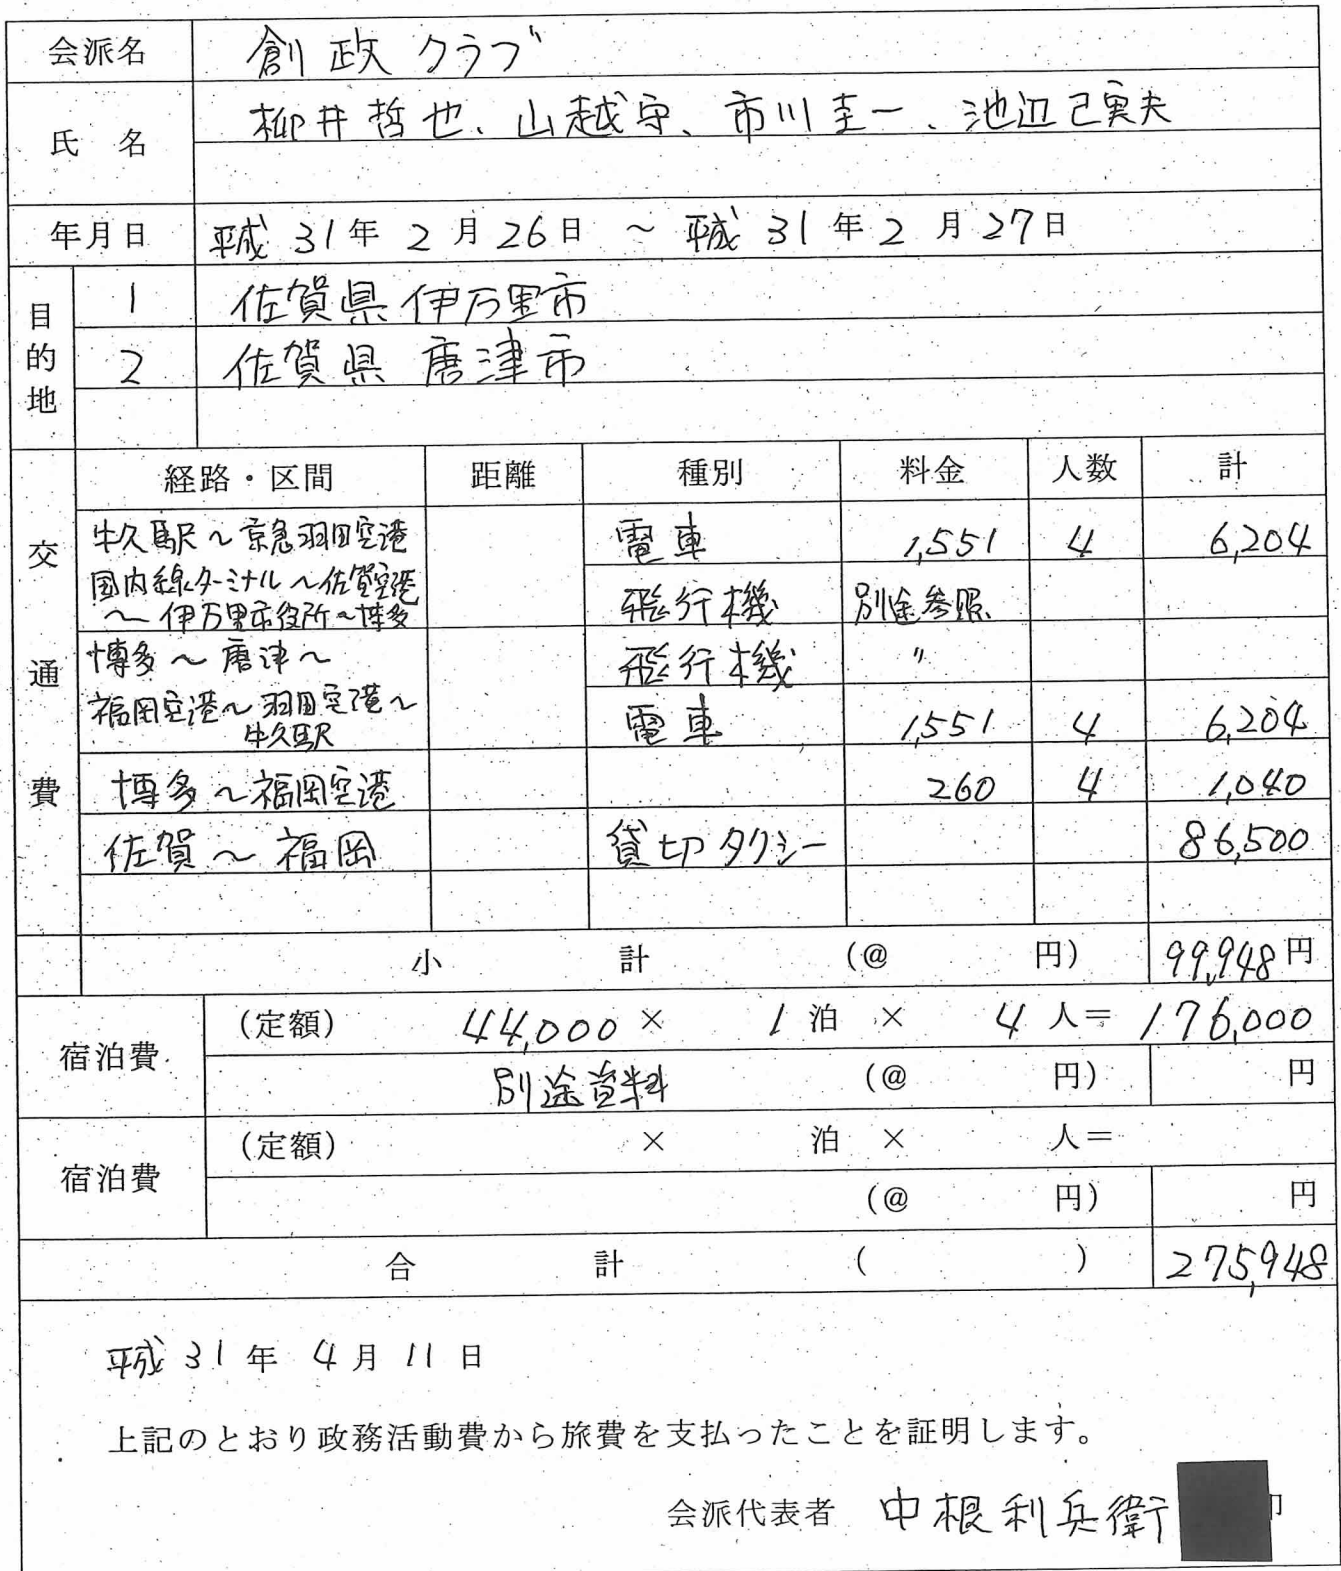 会派名 創政クラブ
氏名 柳井哲也、山越守、市川圭一、池辺己実夫
年月日 平成31年2月26日 ~ 平成31年2月27日
目的地
1 佐賀県伊万里市
2 佐賀県唐津市
交通費
経路・区間 距離 種別 料金 人数 計
牛久駅~京急羽田空港 電車 1,551 4 6,204
国内線ターミナル~佐賀空港
~伊万里市役所~博多 飛行機 別途参照
博多~唐津~ 飛行機 〃
福岡空港~羽田空港~
牛久駅 電車 1,551 4 6,204
博多~福岡空港 260 4 1,040
佐賀~福岡 貸切タクシー 86,500
小計 (@ 円) 99,948円
宿泊費 (定額) 44,000 × 1泊 × 4人= 176,000
別途資料 (@ 円) 円
宿泊費 (定額) × 泊 × 人=
(@ 円) 円
合計 ( ) 275,948
平成31年4月11日
上記のとおり政務活動費から旅費を支払ったことを証明します。
会派代表者 中根利兵衛 印